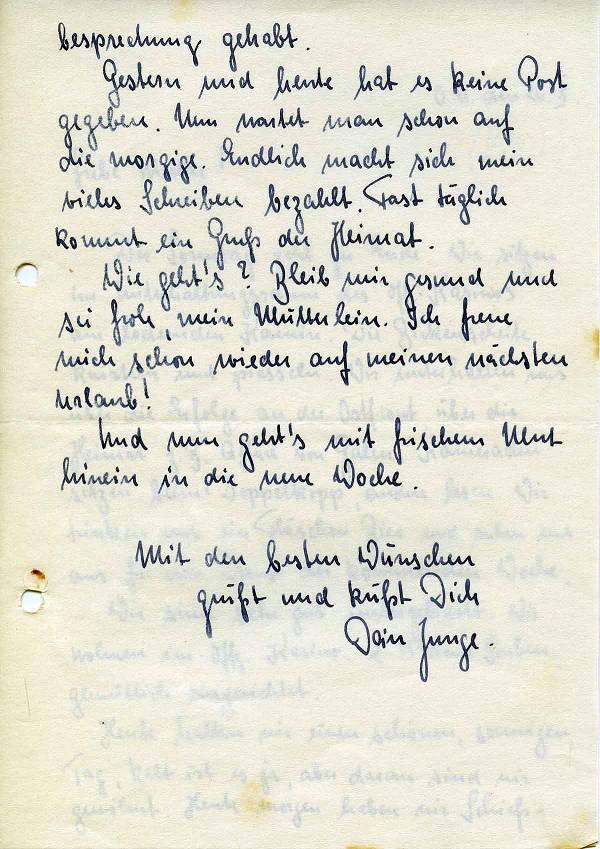 besprechung gehabt.
Gestern und heute hat es keine Post
gegeben. Nun wartet man schon auf
die morgige. Endlich macht sich mein
vieles Schreiben bezahlt. Fast täglich
kommt ein Gruß der Heimat.
Wie geht's? Bleib mir gesund und
sei froh mein Mütterlein. Ich freue
mich schon wieder auf meinen nächsten
Urlaub!
Und nun geht's mit frischem Mut
hinein in die neue Woche.
Mit den besten Wünschen
grüßt und küßt Dich
Dein Junge.